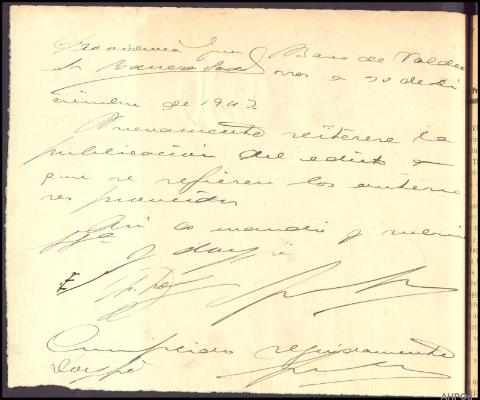 Providencia Juez Barco de Valdeo
Sr. rras a 20 de di
ciembre de 1942
Nuevamente reitérese la
publicación del edicto a
que se refieren los anterio
res proveídos
Así lo mandó y rubrica
S.Sª. y doy fe
Cumplido seguidamente
Doy fe
AHPOU